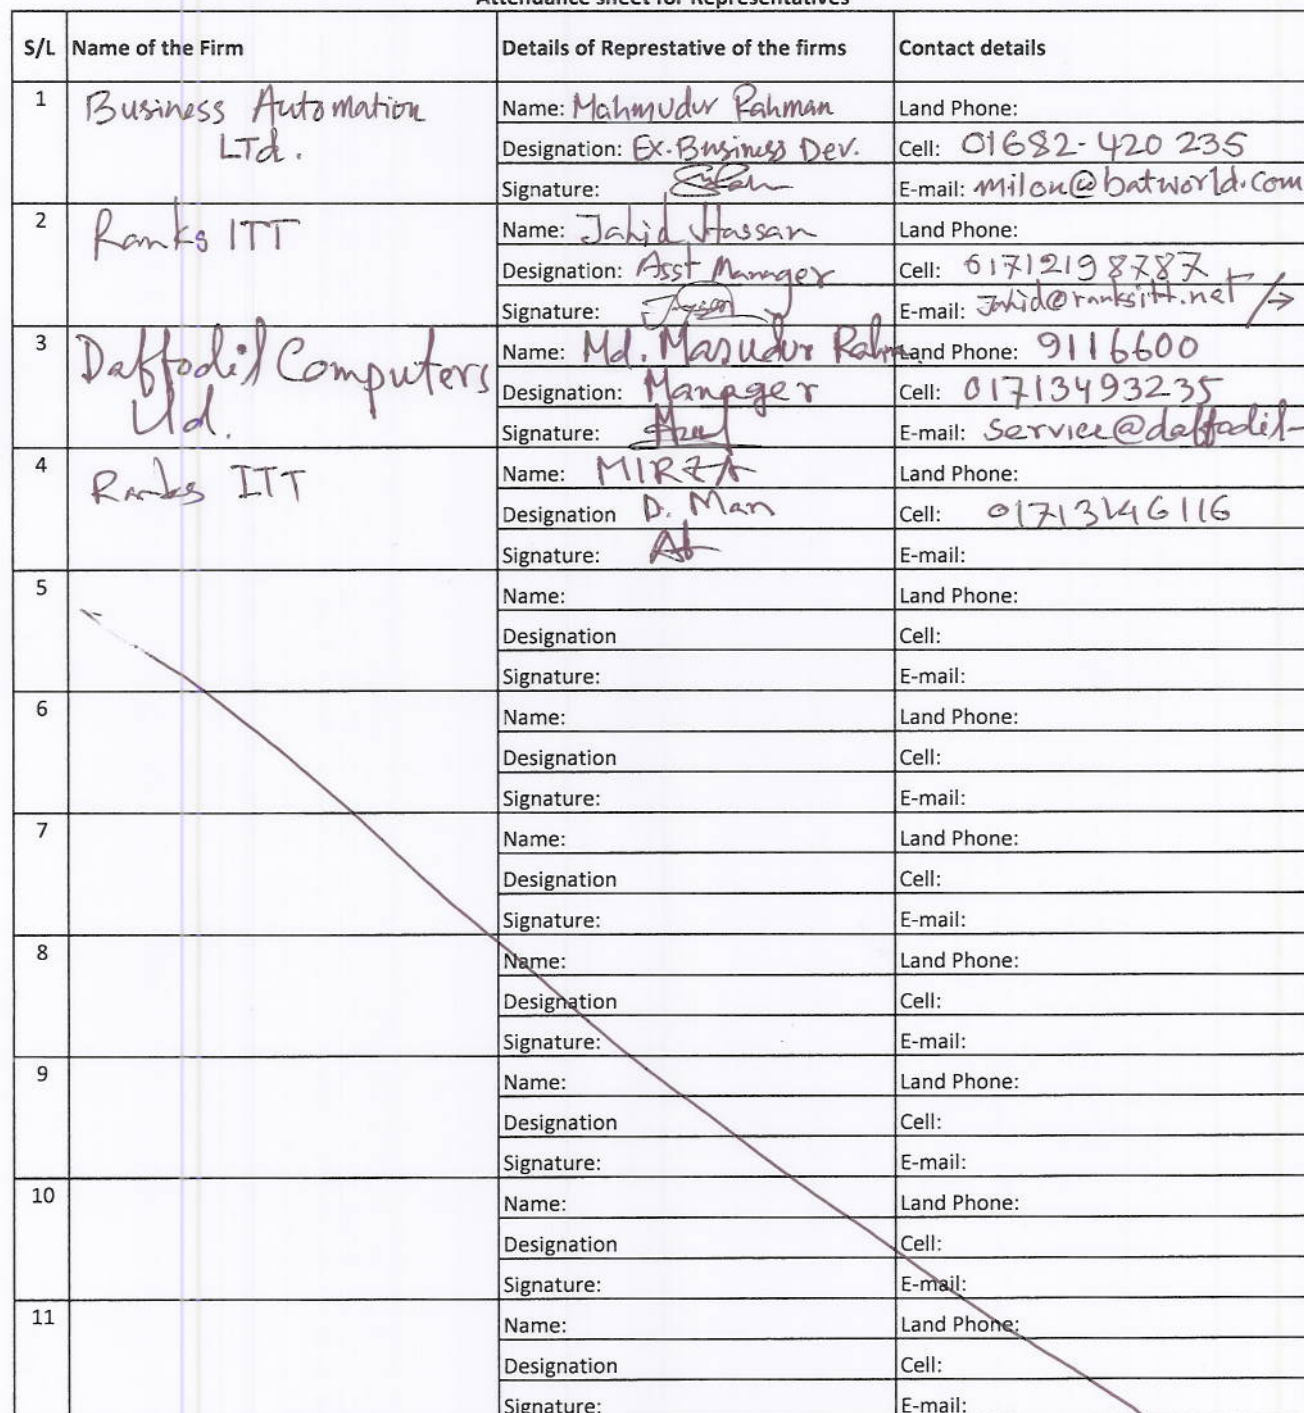 Attendance sheet for Representatives
S/L Name of the Firm Details of Represtative of the firms Contact details
1 Business Automation Name: Mahmudur Rahman Land Phone:
LTd. Designation: Ex. Business Dev. Cell: 01682-420 235
Signature: E-mail: milon@batworld.com
2 Ranks ITT Name: Jahid Hassan Land Phone:
Designation: Asst Manager Cell: 01712198787
Signature: E-mail: Jahid@ranksitt.net
3 Daffodil Computers Name: Md. Masudur Rahman Land Phone: 9116600
Ltd. Designation: Manager Cell: 01713493235
Signature: E-mail: service@daffodil-
4 Ranks ITT Name: MIRZA Land Phone:
Designation D. Man Cell: 01713146116
Signature: E-mail:
5 Name: Land Phone:
Designation Cell:
Signature: E-mail:
6 Name: Land Phone:
Designation Cell:
Signature: E-mail:
7 Name: Land Phone:
Designation Cell:
Signature: E-mail:
8 Name: Land Phone:
Designation Cell:
Signature: E-mail:
9 Name: Land Phone:
Designation Cell:
Signature: E-mail:
10 Name: Land Phone:
Designation Cell:
Signature: E-mail:
11 Name: Land Phone:
Designation Cell:
Signature: E-mail: